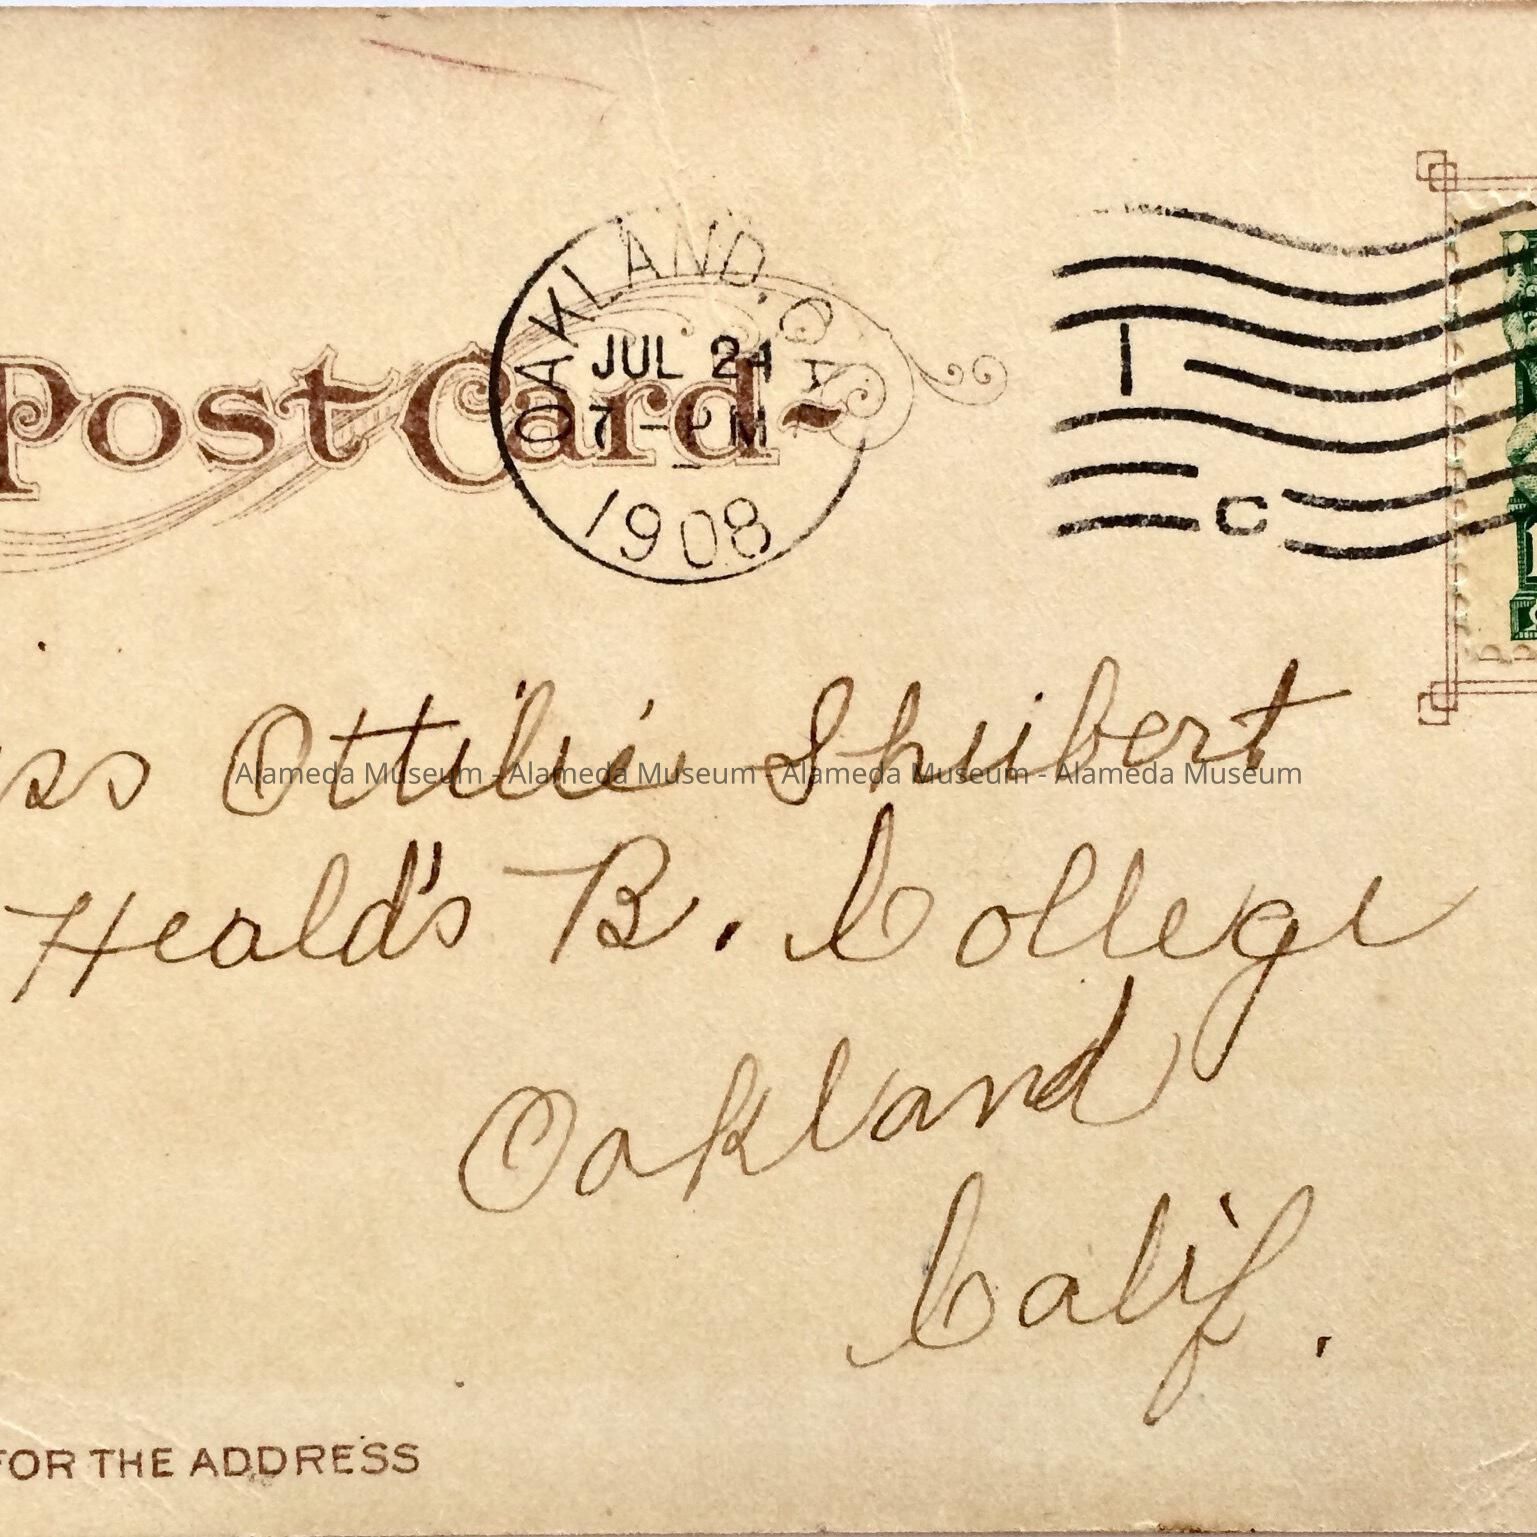 OAKLAND, CA
JUL 24
7-PM
1908
Post Card
1
C
ss Ottilie Shubert
Alameda Museum - Alameda Museum - Alameda Museum - Alameda Museum
Heald's B. College
Oakland
Calif.
FOR THE ADDRESS